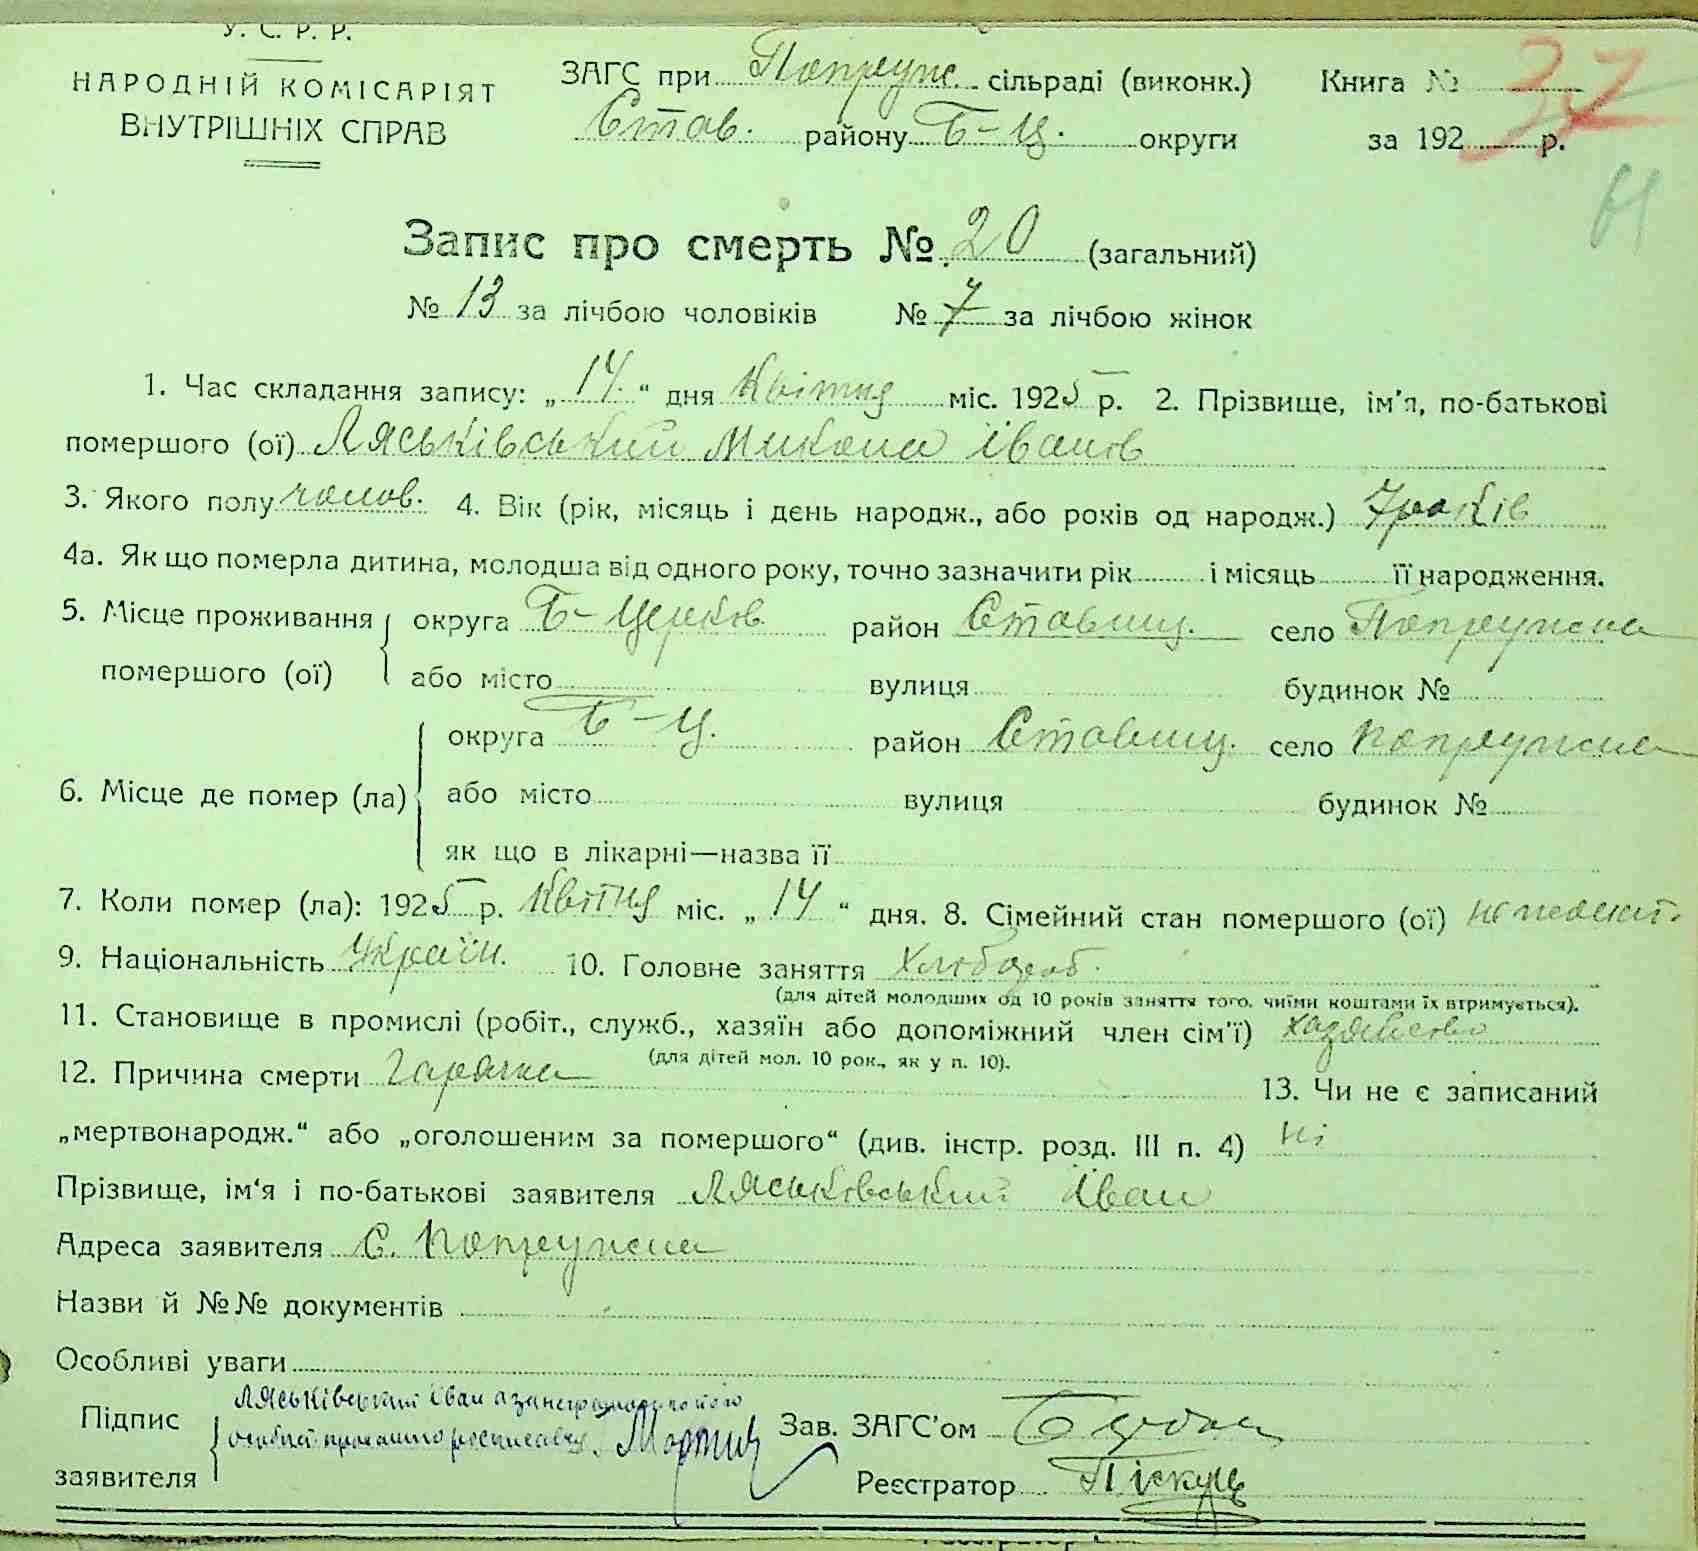 У. С. Р. Р.
НАРОДНІЙ КОМІСАРІЯТ
ВНУТРІШНІХ СПРАВ
ЗАГС при Попружс. сільраді (виконк.)
Став. району Б-Ц. округи
Книга №
за 192 р.
37
Запис про смерть № 20 (загальний)
№ 13 за лічбою чоловіків № 7 за лічбою жінок
1. Час складання запису: „14.“ дня Квітня міс. 1925 р. 2. Прізвище, ім'я, по-батькові
помершого (ої) Ляськівський Микола Іванов
3. Якого полу чолов. 4. Вік (рік, місяць і день народж., або років од народж.) 7 років
4а. Як що померла дитина, молодша від одного року, точно зазначити рік і місяць її народження.
5. Місце проживання помершого (ої) округа Б-Церков район Ставищ. село Попружна
або місто вулиця будинок №
6. Місце де помер (ла) округа Б-Ц. район Ставищ. село Попружна
або місто вулиця будинок №
як що в лікарні—назва її
7. Коли помер (ла): 1925 р. Квітня міс. „14“ дня. 8. Сімейний стан помершого (ої) не жонат.
9. Національність Україн. 10. Головне заняття Хлібороб.
(для дітей молодших од 10 років заняття того, чиїми коштами їх втримується).
11. Становище в промислі (робіт., служб., хазяїн або допоміжний член сім'ї)
(для дітей мол. 10 рок., як у п. 10).
12. Причина смерти Гарячка
13. Чи не є записаний
„мертвонародж.“ або „оголошеним за помершого“ (див. інстр. розд. III п. 4) Ні
Прізвище, ім'я і по-батькові заявителя Ляськовський Іван
Адреса заявителя С. Попружна
Назви й №№ документів
Особливі уваги
Підпис заявителя Ляськівський Іван а за неграмотного його
особист. Мартин
Зав. ЗАГС'ом
Реєстратор Піскун